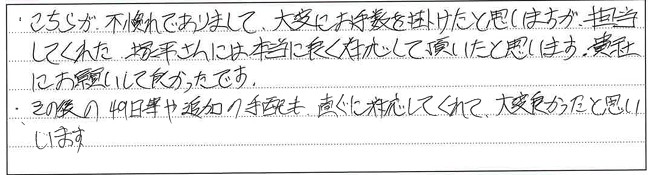 ・こちらが不慣れでありまして、大変にお手数を掛けたと思いますが、担当
してくれた坂平さんには本当に良く対応して頂いたと思います。貴社
にお願いして良かったです。
・その後の49日等や追加の手配も、直ぐに対応してくれて、大変良かったと思い
います